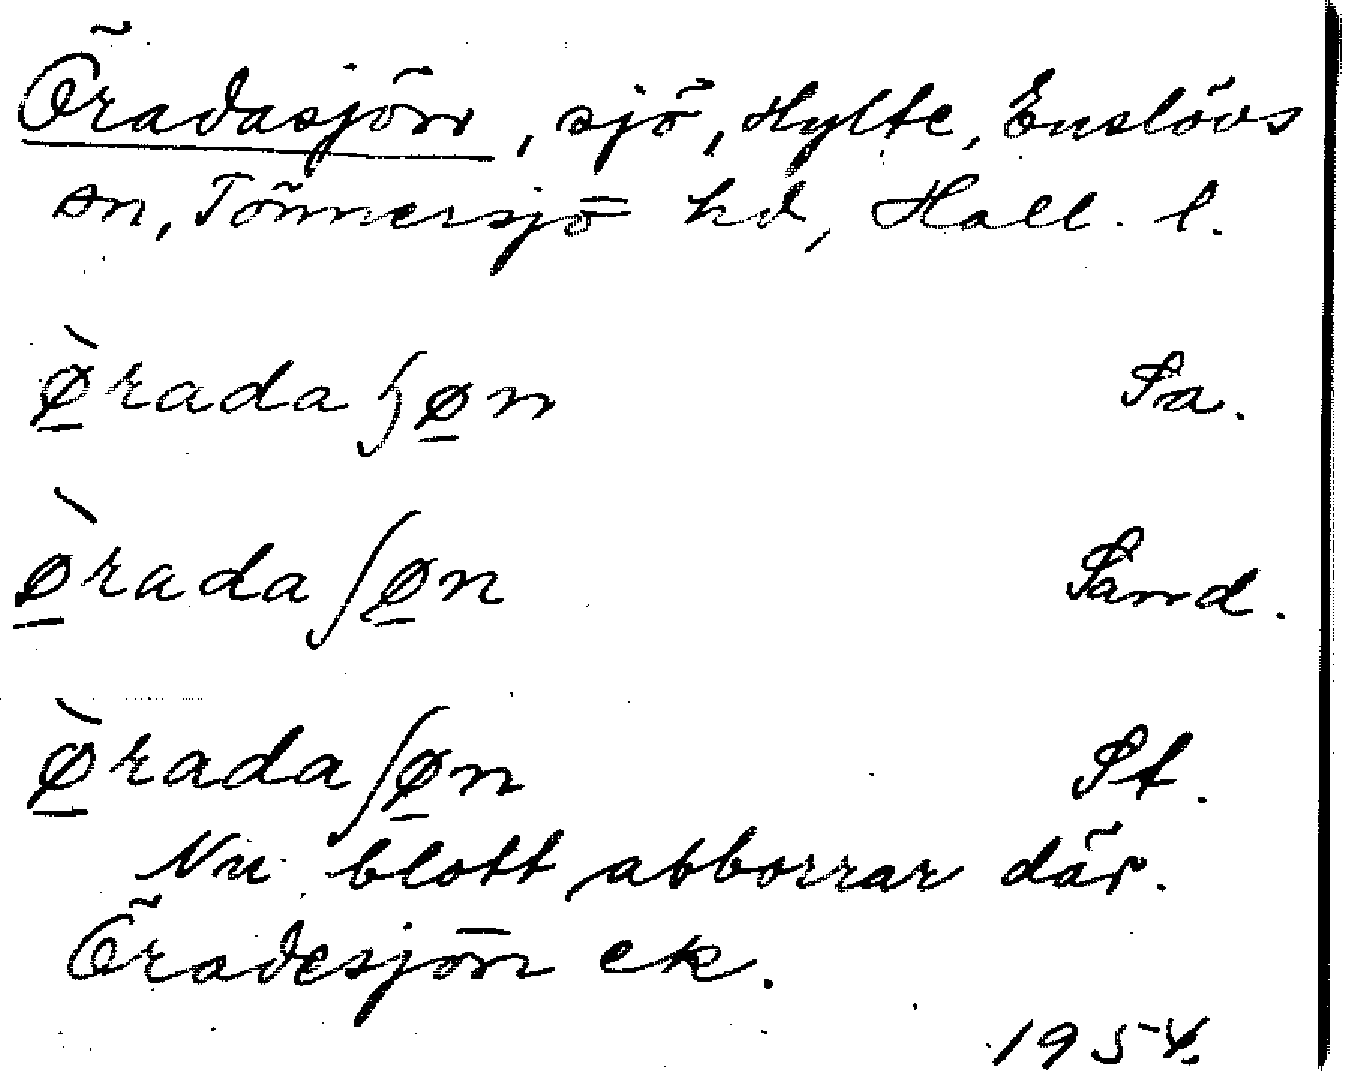 Öradasjön, sjö, Hylte, Enslövs
sn, Tönnersjö hd, Hall. l.
ø̲̀radaɧø̲n Sa.
ø̲̀radaʃø̲n Sand.
ø̲̀radaʃø̲n St.
Nu blott abborrar där.
Öradesjön ek.
1954.